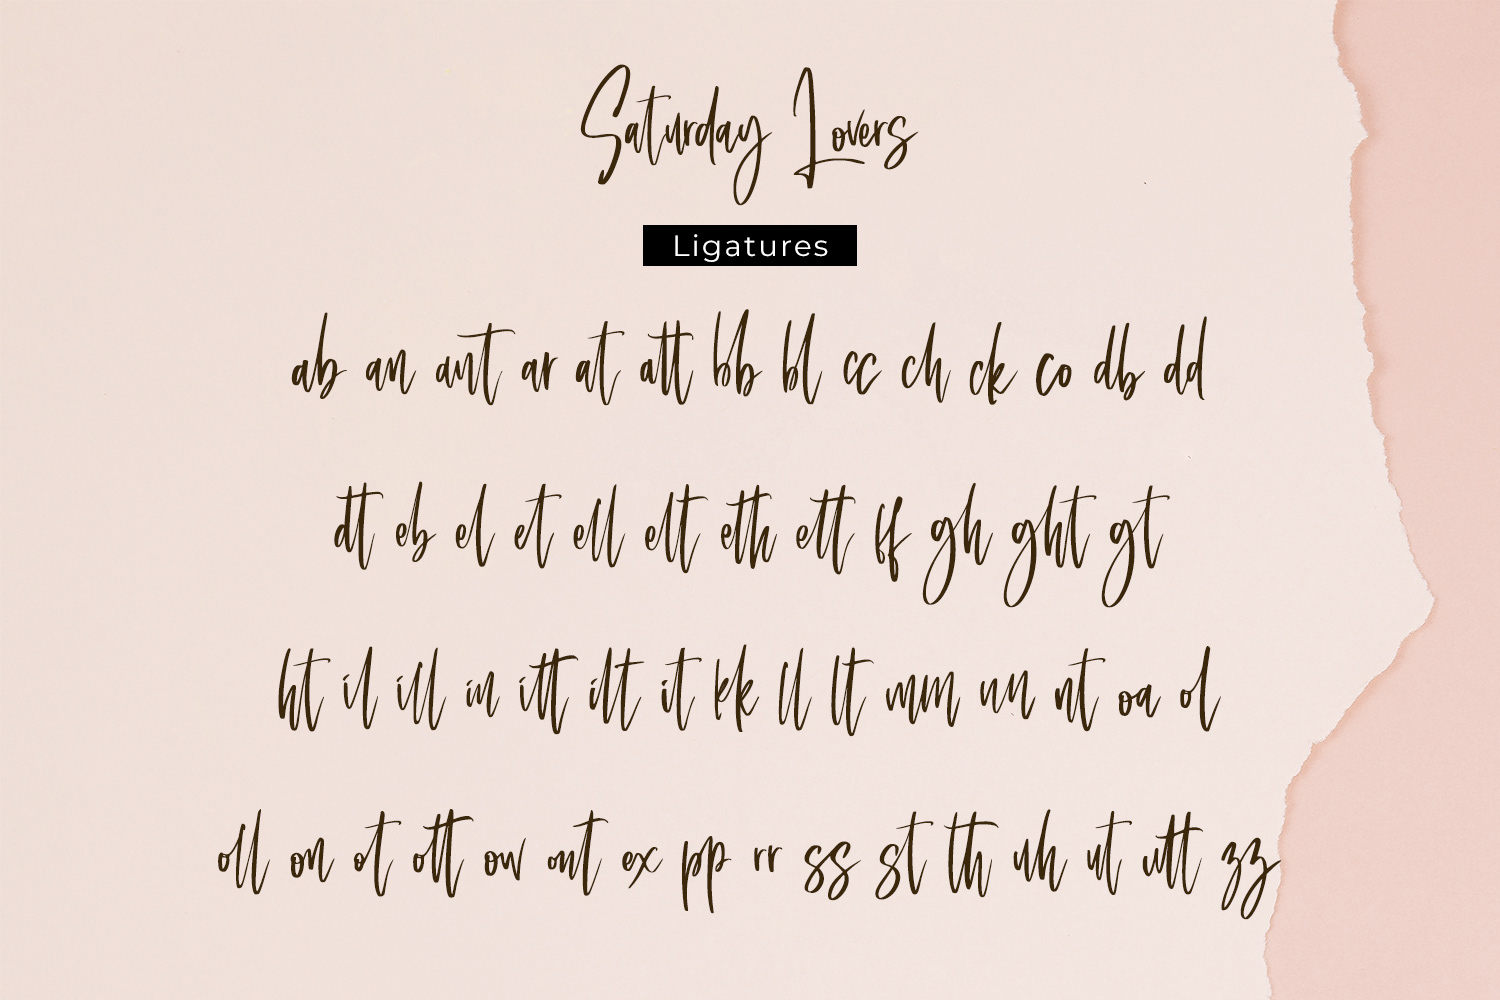 Saturday Lovers
Ligatures
ab an ant ar at att bb bl cc ch ck co db dd
dt eb el et ell elt eth ett ff gh ght gt
ht il ill in itt ilt it kk ll lt mm nn nt oa ol
oll on ot ott ow ont ex pp rr ss st th uh ut utt zz